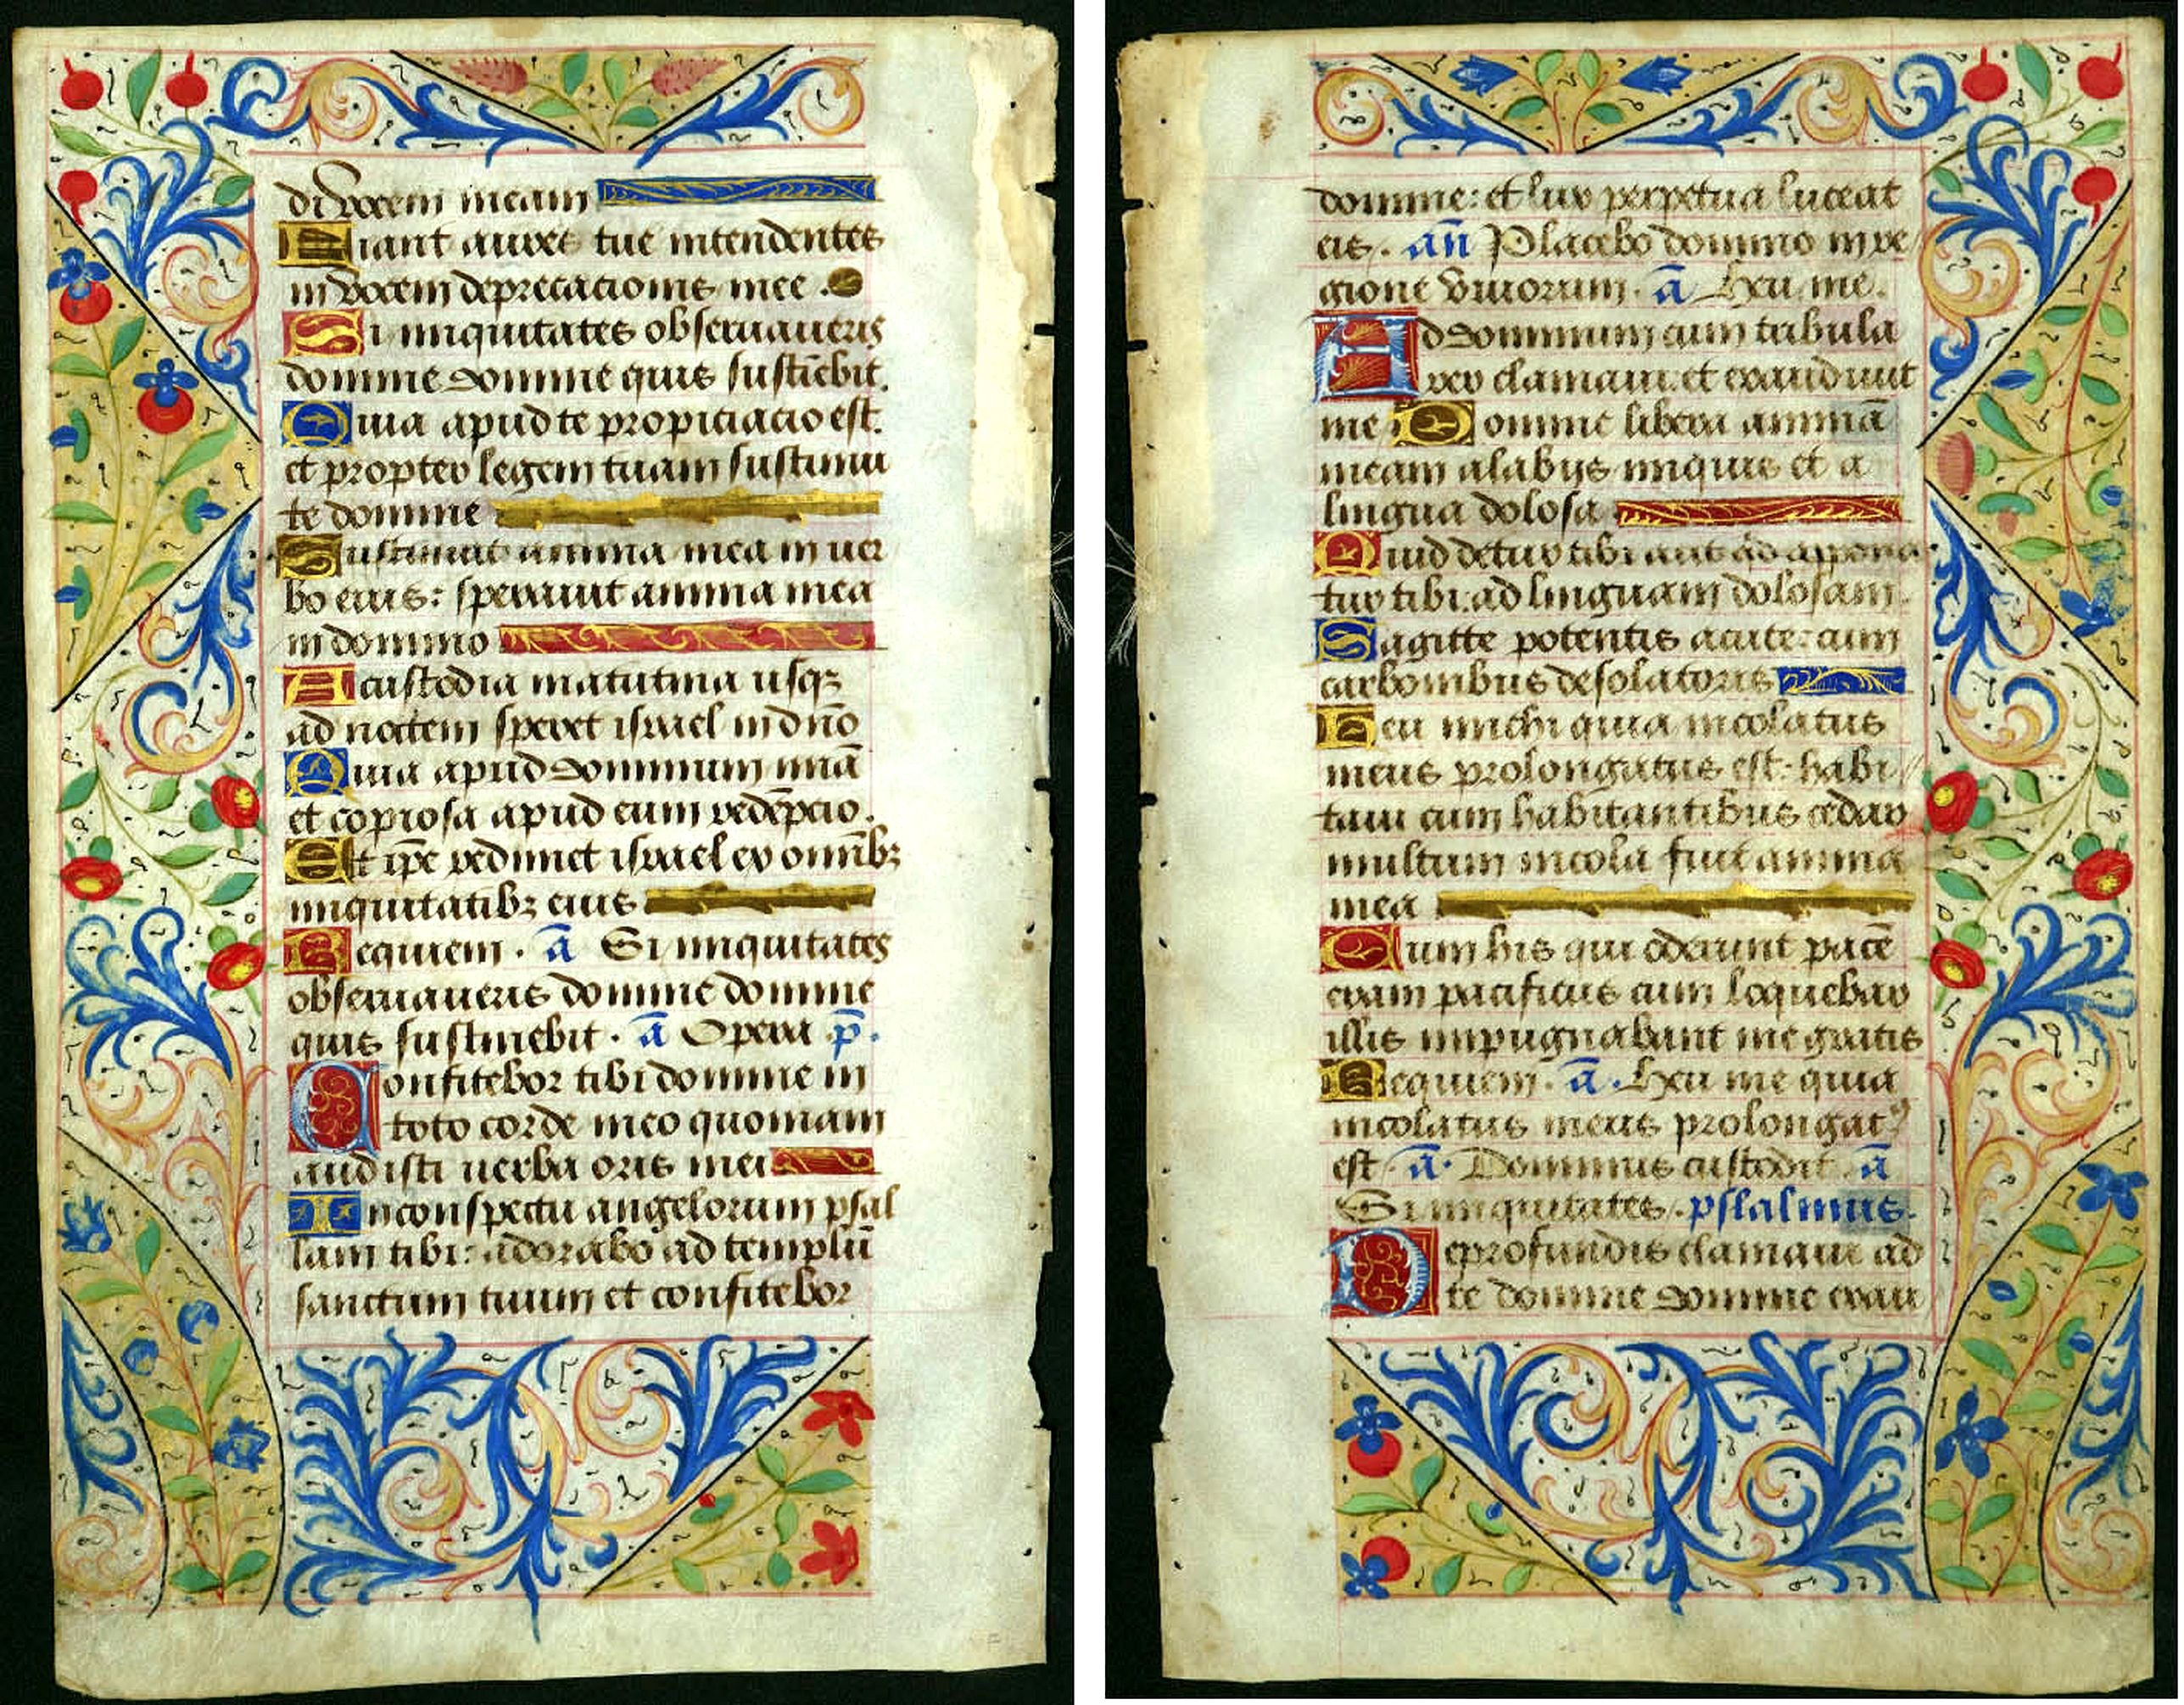 di vocem meam
Fiant aures tue intendentes
in vocem deprecacionis mee.
Si iniquitates obseruaueris
domine domine quis sustiēbit.
Quia apud te propiciacio est.
et propter legem tuam sustinui
te domine
Sustinuit anima mea in uer
bo eius: sperauit anima mea
in domino
A custodia matutina usqꝫ
ad noctem speret israel in dño
Quia apud dominum mīā
et copiosa apud eum redēpcio.
Et ip̄e redimet israel ex omībꝫ
iniquitatibꝫ eius
Requiem. ā Si iniquitates
obseruaueris domine domine
quis sustinebit. ā Opera p̄.
Confitebor tibi domine in
toto corde meo quoniam
audisti uerba oris mei
In conspectu angelorum psal
lam tibi: adorabo ad templū
sanctum tuum et confitebor
domine: et lux perpetua luceat
eis. an̄ Placebo domino in re
gione viuorum. ā Heu me.
Ad dominum cum tribula
rer clamaui: et exaudiuit
me Domine libera animā
meam a labijs iniquis et a
lingua dolosa
Quid detur tibi aut ad apona
tur tibi: ad linguam dolosam.
Sagitte potentis acute: cum
carbonibus desolatoris
Heu michi quia incolatus
meus prolongatus est: habi
taui cum habitantibus cedar
multum incola fuit anima
mea
Cum his qui oderunt pacē
eram pacificus cum loquebar
illis impugnabant me gratis
Requiem. ā. Heu me quia
incolatus meus prolongatꝰ
est. ā. Dominus custodit ā
Si iniquitates. pslalmus.
De profundis clamaui ad
te domine domine exau